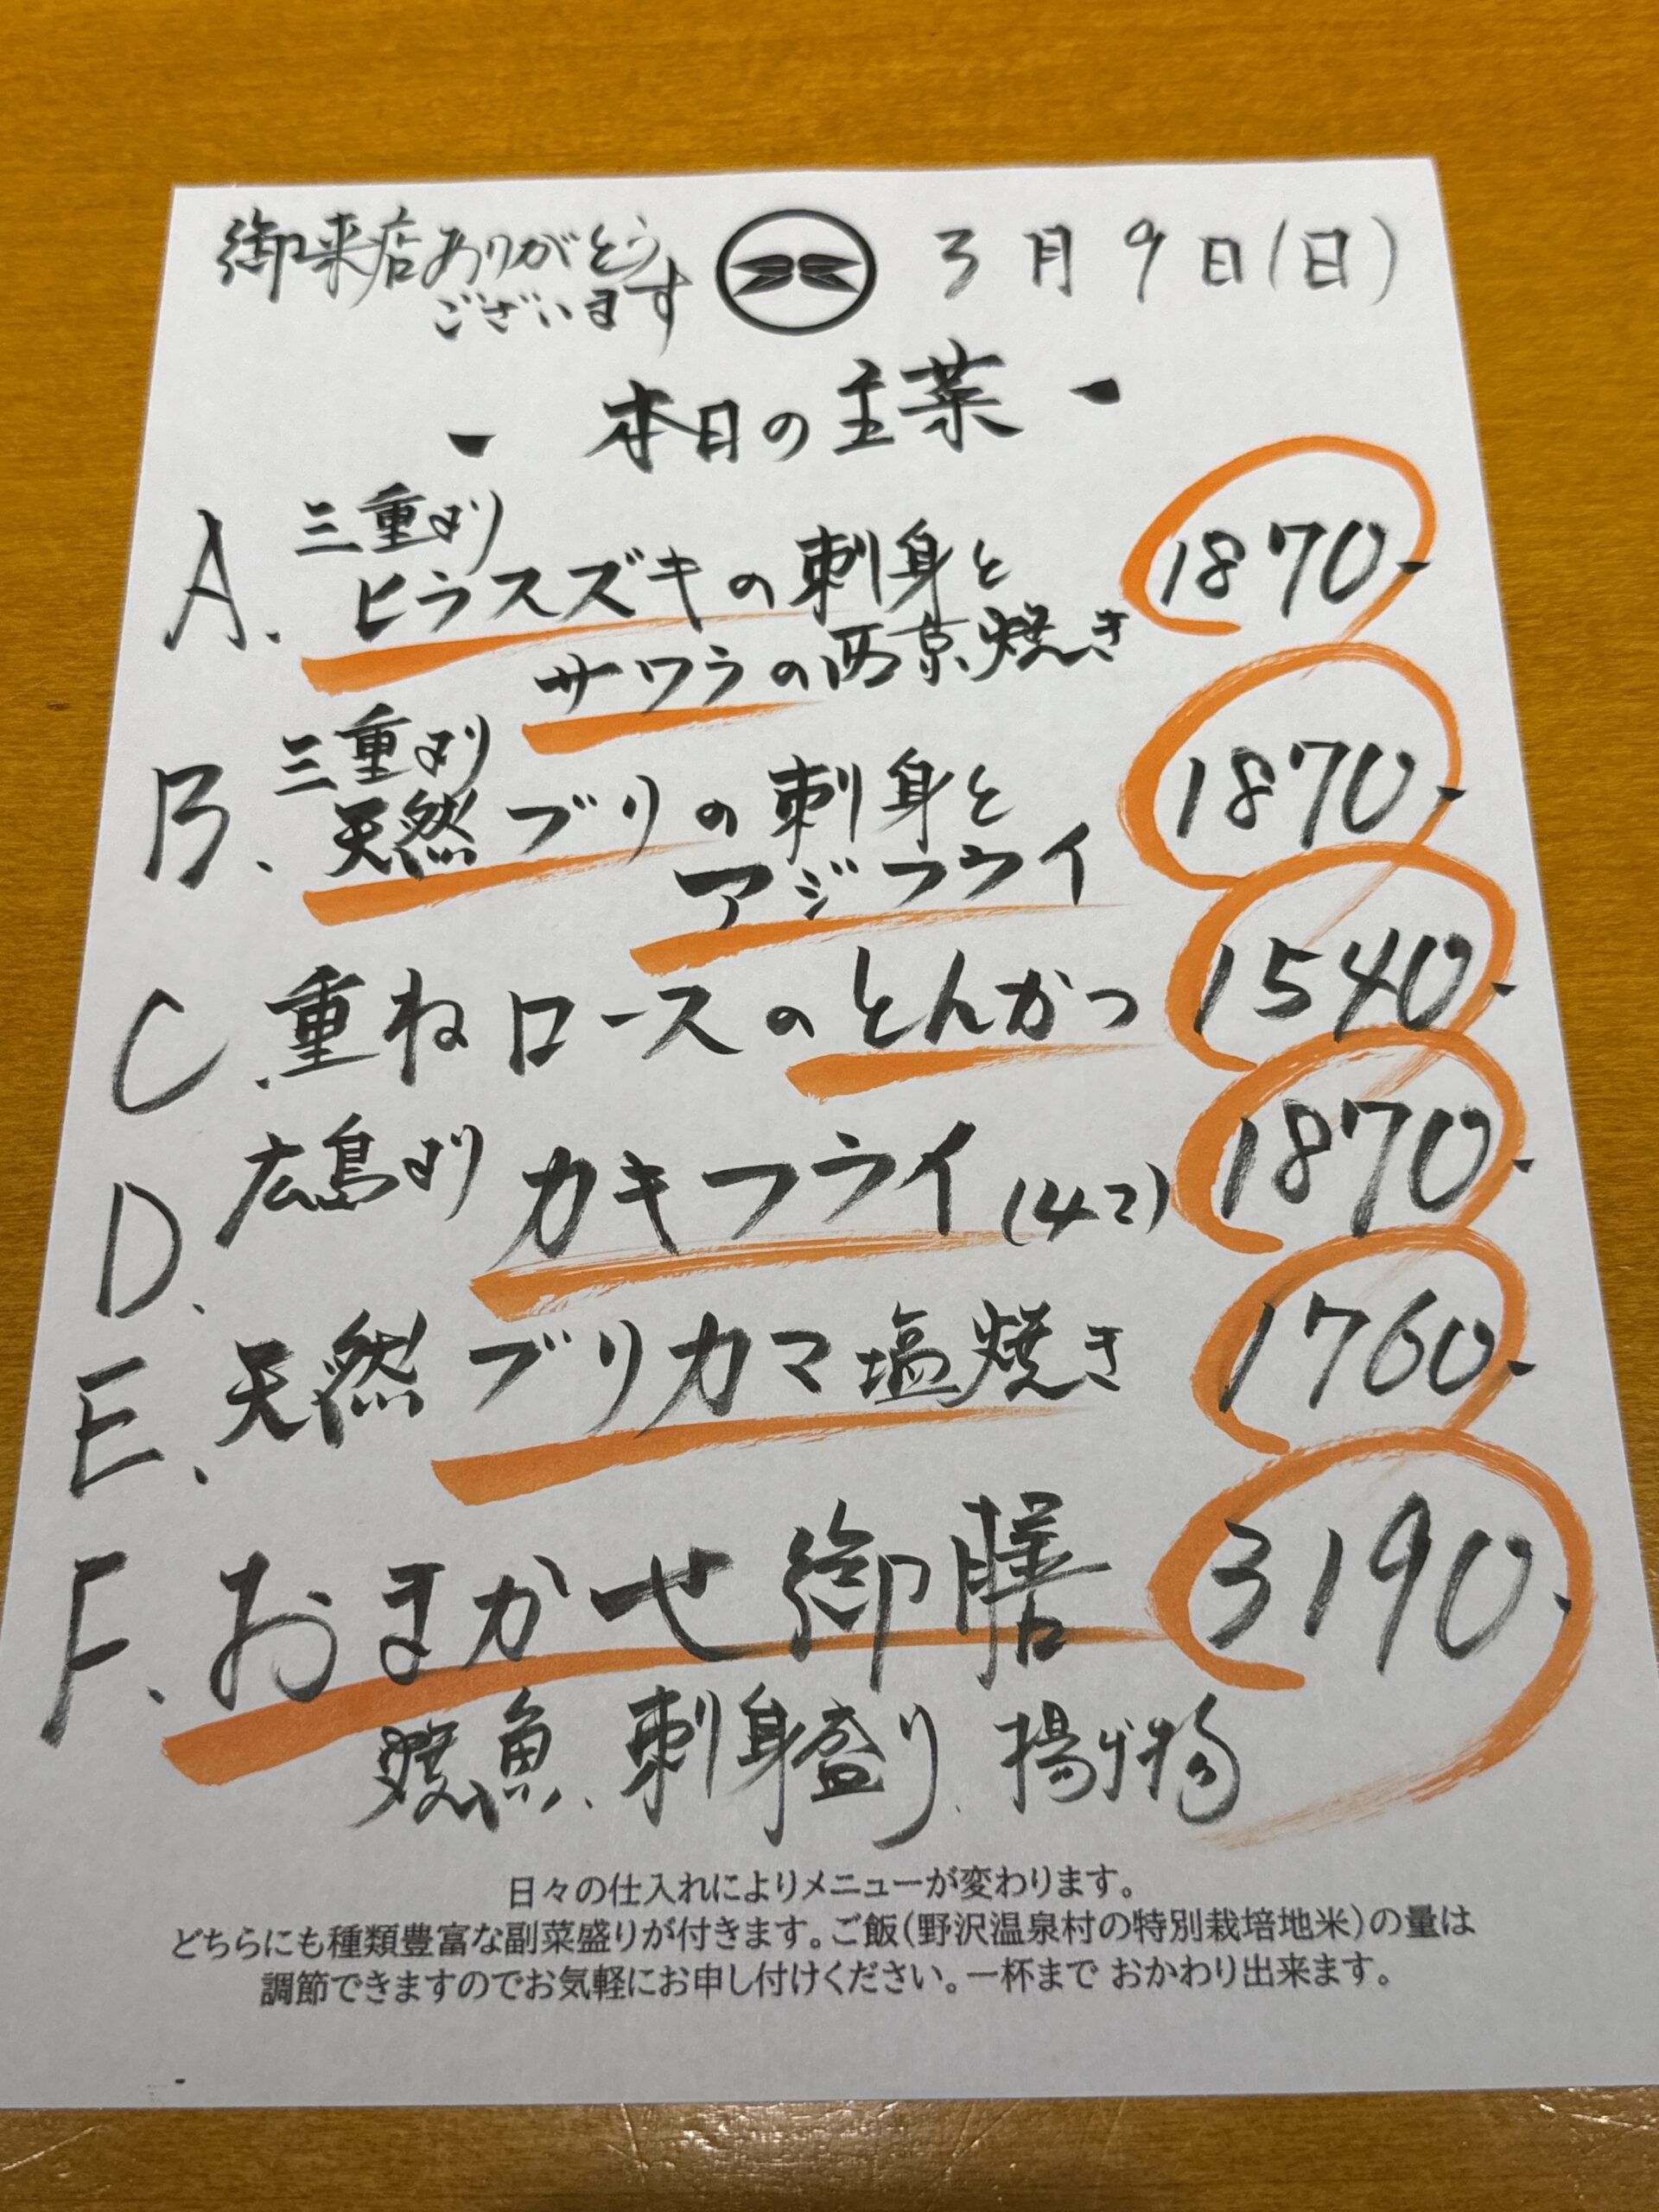 御来店ありがとう
ございます
3月9日(日)
- 本日の主菜 -
A. 三重より
ヒラスズキの刺身と
サワラの西京焼き
1870-
B. 三重より
天然ブリの刺身と
アジフライ
1870-
C. 重ねロースのとんかつ 1540-
D. 広島より カキフライ(4コ) 1870-
E. 天然ブリカマ塩焼き 1760-
F. おまかせ御膳 3190-
焼魚、刺身盛り、揚げ物
日々の仕入れによりメニューが変わります。
どちらにも種類豊富な副菜盛りが付きます。ご飯(野沢温泉村の特別栽培地米)の量は
調節できますのでお気軽にお申し付けください。一杯まで おかわり出来ます。